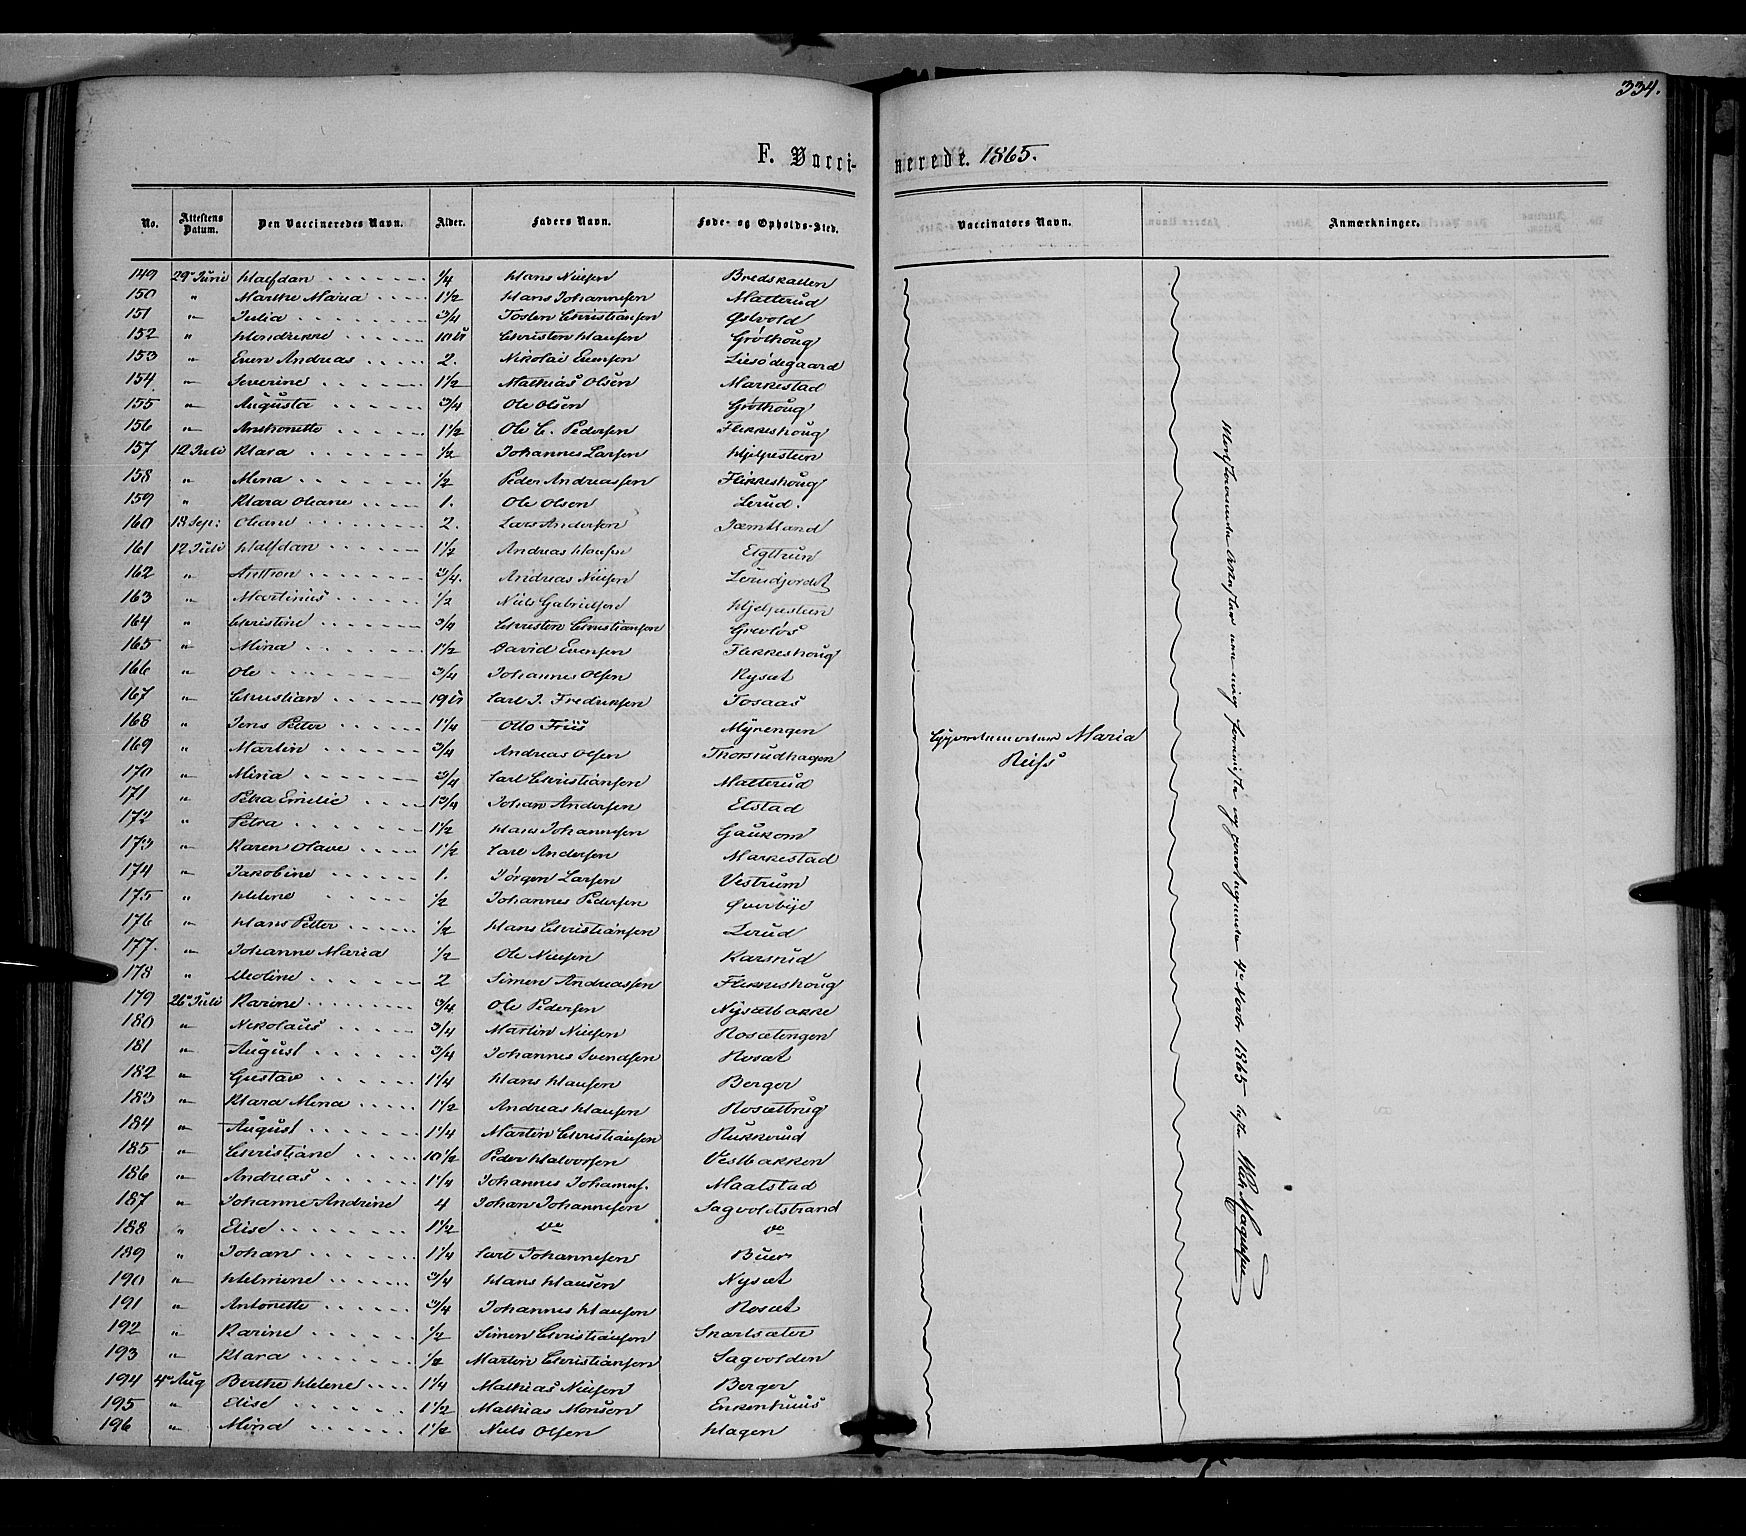 334.
F. Vaccinerede. 1865.
No. | Attestens Datum. | Den Vaccineredes Navn. | Alder. | Faders Navn. | Føde- og Opholds-Sted. | Vaccinators Navn. | Anmærkninger.
149 29 Juni Halfdan 1/4 Hans Nielsen Bredskallen
150 " Marthe Maria 1 1/2 Hans Johannesen Matterud
151 " Julia 3/4 Tosten Christiansen Østvold
152 " Hendrikke Christen Hansen Grøthoug
153 " Even Andreas 2. Nikolai Evensen Liesødegaard
154 " Severine 1 1/2 Mathias Olsen Markestad
155 " Augusta 3/4 Ole Olsen Grøthoug
156 " Anthonette 1 1/2 Ole C. Pedersen Flikkeshoug
157 12 Juli Klara 1/2 Johannes Larsen Hjelpesteen
158 " Mina 1/2 Peder Andreassen Flikkeshoug
159 " Klara Oleane 1. Ole Olsen Lerud.
160 18 Sep: Oliane 2. Lars Andersen Jæmtland
161 12 Juli Halfdan 1 1/2 Andreas Hansen Elgttun
162 " Anthon 3/4. Andreas Nielsen Lerudjordet
163 " Martinus 1/2 Niels Gabrielsen Hjelpesteen
164 " Christine 3/4 Christen Christiansen Grevløs
165 " Mina 1 1/2 David Evensen Flikkeshoug
166 " Ole 3/4 Johannes Olsen Rysæt
167 " Christian Carl J. Fredriksen Tosaas
168 " Jens Petter 1 1/4 Otto Friis Myrengen
169 " Martin 3/4 Andreas Olsen Thorsrudhagen
Gjordemoder Maria
Reihs
170 " Mina 3/4 Carl Christiansen Matterud
171 " Petra Emilie 1 3/4 Johan Andersen Elstad
172 " Petra 1 1/2 Hans Johannesen Gaukom
173 " Karen Olave 1 1/2 Carl Andersen Markestad
174 " Jakobine 1. Jørgen Larsen Vestrum
175 " Helene 1/2 Johannes Pedersen Øverbye
176 " Hans Petter 1/2 Hans Christiansen Lerud
177. " Johanne Maria 1/2 Ole Nielsen Karsrud
178 " Oleoline 2 Simen Andreassen Flikkeshoug
179 26 Juli Karine 3/4 Ole Pedersen Nysætbakke
180 " Nikolaus 3/4 Martin Nielsen Rosætengen
181 " August 3/4 Johannes Svendsen Rosæt
182 " Gustav 1 1/4 Hans Hansen Berger
183 " Klara Mina 1 1/2 Andreas Hansen Rosætbrug
184 " August 1 1/4 Martin Christiansen Rukkerud
185 " Christiane 10 1/2 Peder Halvorsen Vestbakken
186 " Andreas 1 1/4 Johannes Johannes. Maalstad
187 " Johanne Andrine 4 Johan Johannesen Sagvoldstrand
188 " Elise 1 1/2 do do
189 " Johan 1 1/4 Carl Johannesen Buer
190 " Helmine 3/4 Hans Hansen Nysæt
191 " Antonette 3/4 Johannes Hansen Rosæt
192 " Karine 1/2 Simen Christiansen Snartsæter
193 " Klara 1/2 Martin Christiansen Sagvolden
194 4 Aug Berthe Helene 1 1/4 Mathias Nielsen Berger
195 " Elise 1 1/2 Mathias Monsen Enkenhuus
196 " Mina 1 1/2 Niels Olsen Hagen
4 Novbr 1865